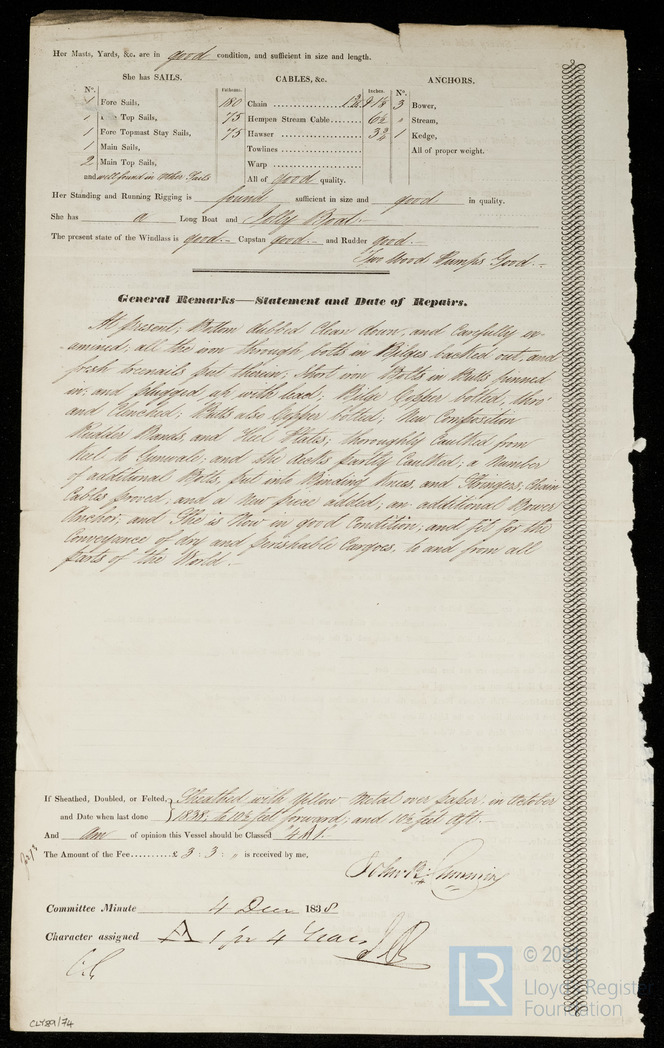 Her Masts, Yards, &c. are in good condition, and sufficient in size and length.
She has SAILS. CABLES, &c. ANCHORS.
N°. Fathoms. Inches. N°.
1 Fore Sails, 180 Chain 1 3 Bower,
1 Top Sails, 75 Hempen Stream Cable 6½ Stream,
1 Fore Topmast Stay Sails, 75 Hawser 1 Kedge,
1 Main Sails, Towlines All of proper weight.
2 Main Top Sails, Warp
and well found in other Sails All of good quality.
Her Standing and Running Rigging is found sufficient in size and good in quality.
She has a Long Boat and Jolly Boat.-
The present state of the Windlass is good.- Capstan good.- and Rudder good.-
Two Wood Pumps Good.-
General Remarks—Statement and Date of Repairs.
At present; Bottom dubbed clean down, and Carefully ex-
-amined; all the iron through bolts in Bilges backed out, and
fresh treenails put therein; Short iron Bolts in Butts punned
in; and plugged up with lead; Bilge Copper bolted, thro'
and Clinched; Butts also Copper bolted; New Composition
Rudder Bands, and Heel Plates; thoroughly Caulked from
Keel to Gunwale; and the decks partly Caulked; a Number
of additional Bolts, put into Binding Knees, and Stringers; Chain
Cables proved; and a New piece added; an additional Bower
Anchor; and She is Now in good Condition; and fit for the
Conveyance of dry and perishable Cargoes, to and from all
parts of the World.-
If Sheathed, Doubled, or Felted, Sheathed with Yellow Metal over paper; in October
and Date when last done 1838; to 10½ feet forward; and 10½ feet Aft.-
And am of opinion this Vessel should be Classed "4 A 1."
The Amount of the Fee £ 3 : 3 : „ is received by me,
Committee Minute 4 Decr 1838
Character assigned A 1 for 4 Years
CLY589/74
LR
© 20
Lloyd's Register
Foundation